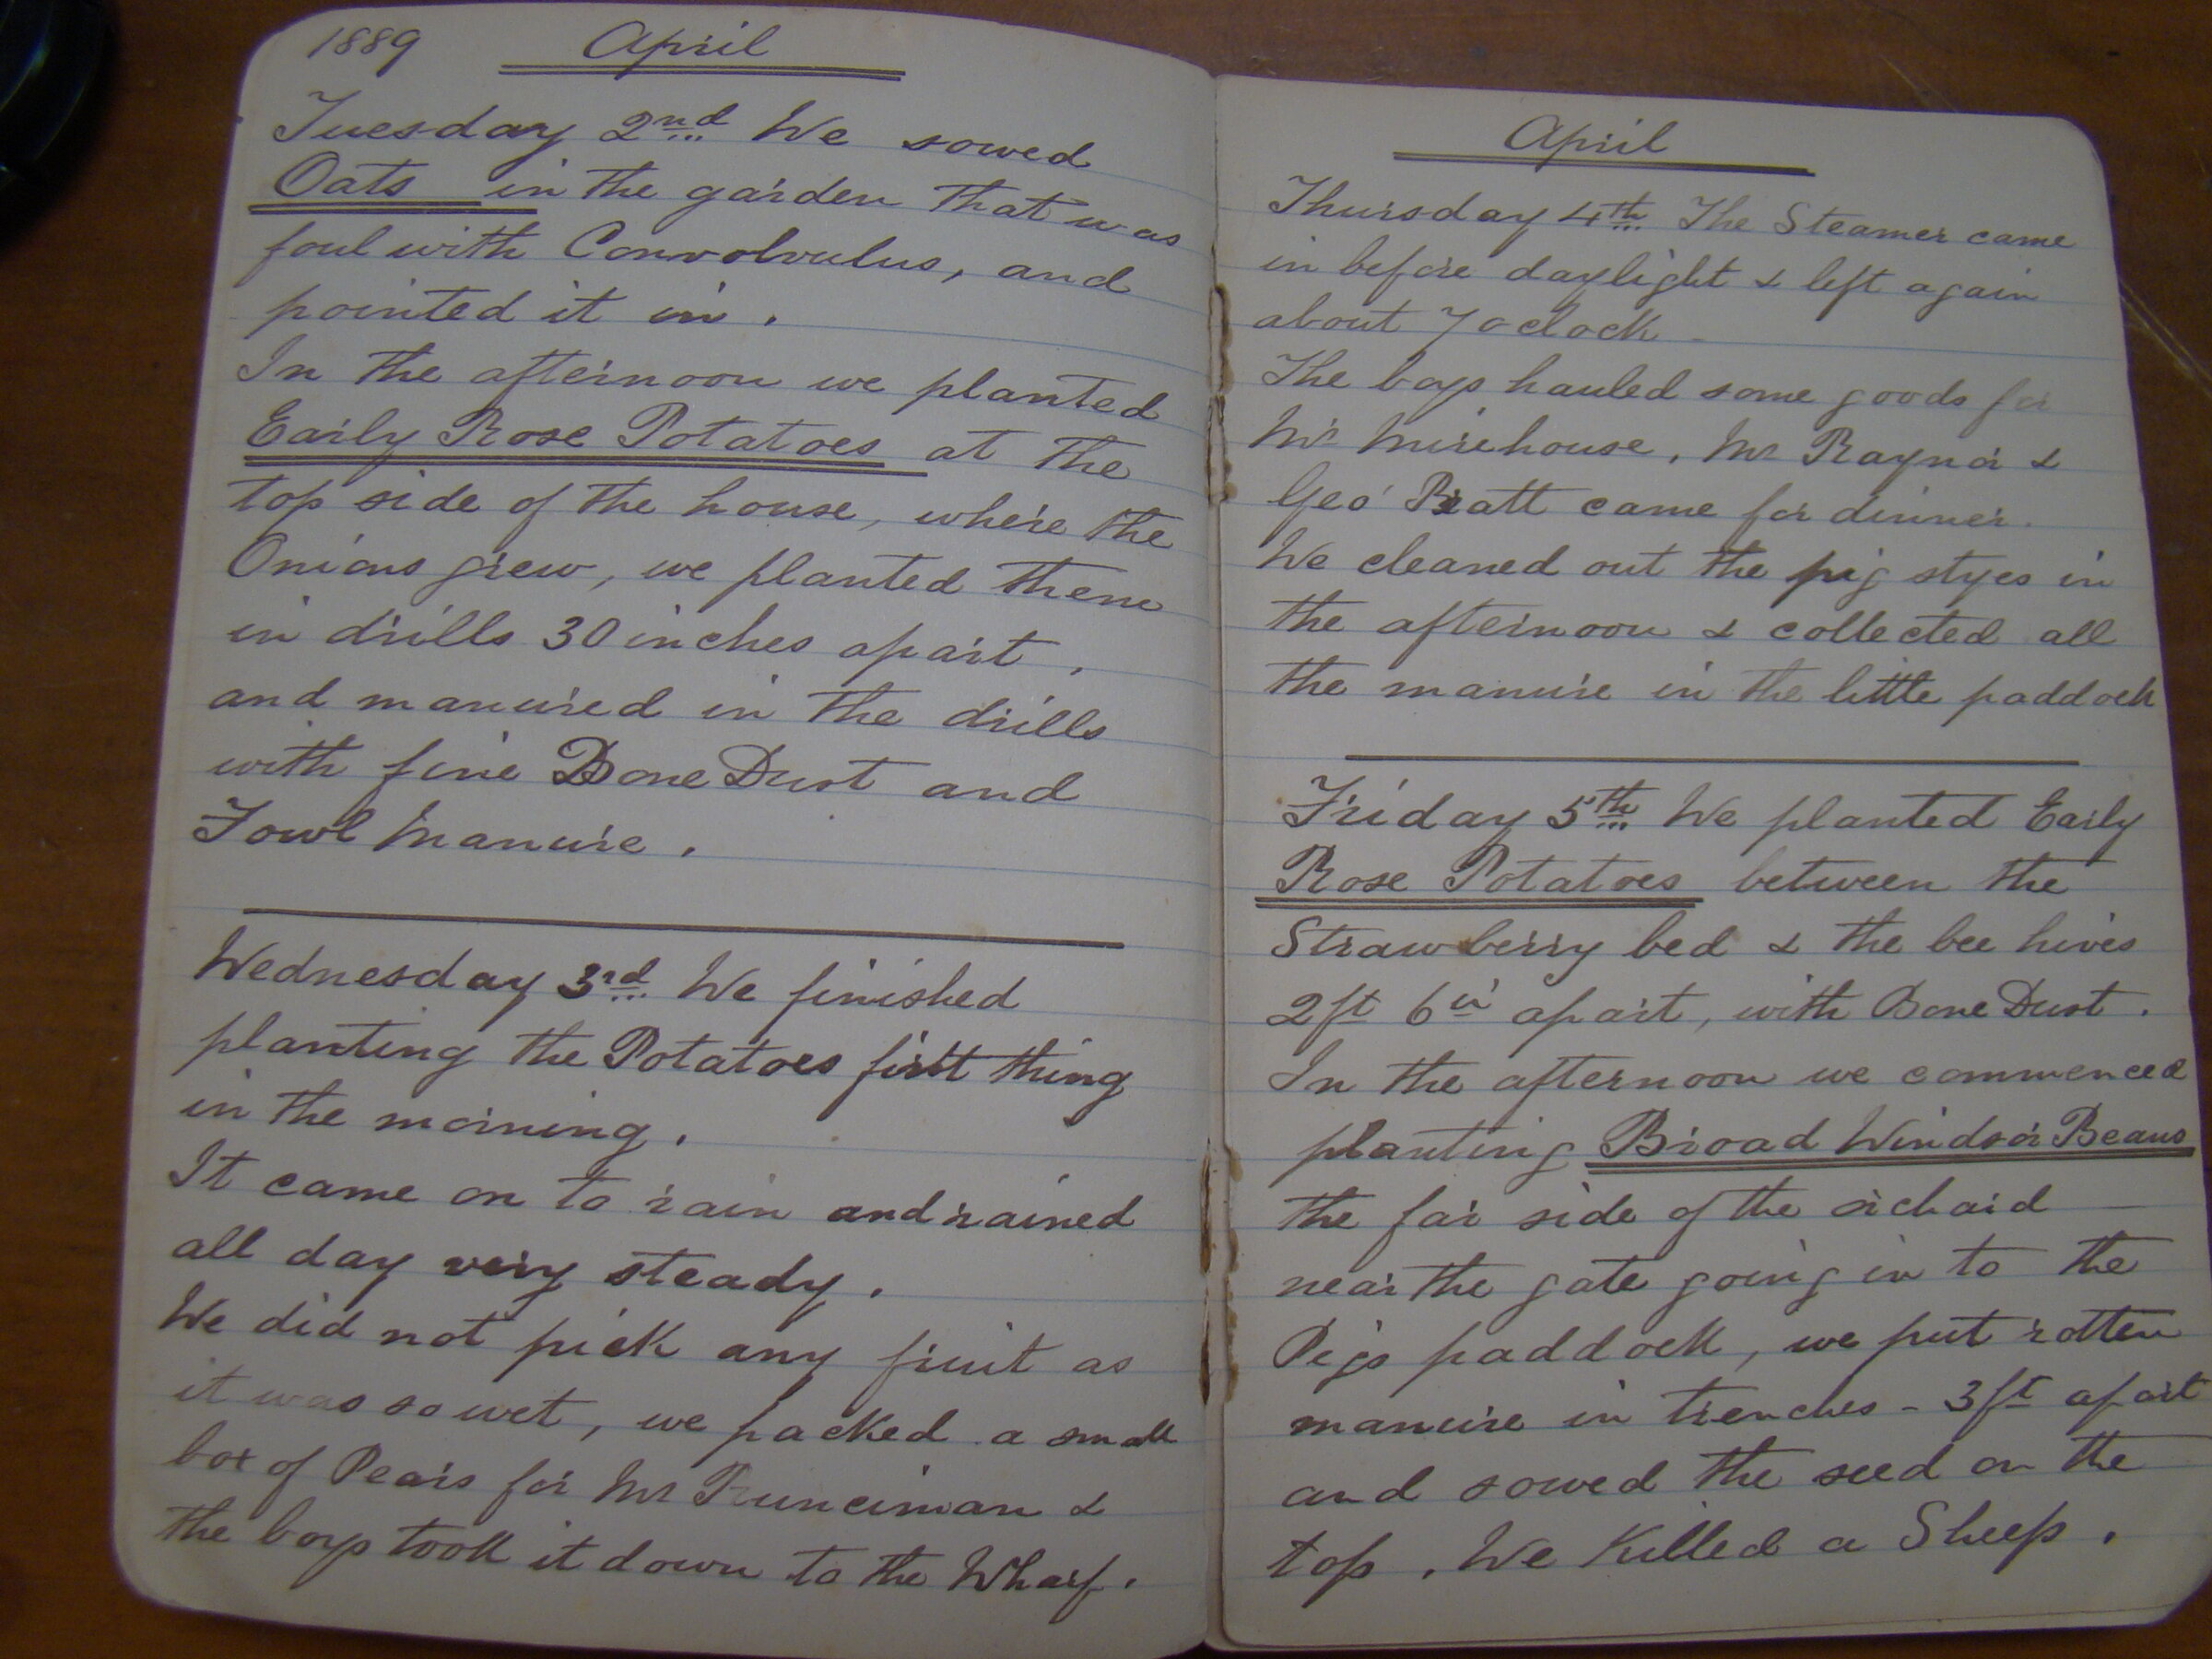 1889 April
Tuesday 2nd We sowed
Oats in the garden that was
foul with Convolvulus, and
pointed it in.
In the afternoon we planted
Early Rose Potatoes at the
top side of the house, where the
Onions grew, we planted them
in drills 30 inches apart,
and manured in the drills
with fine Bone Dust and
Fowl Manure.
Wednesday 3rd We finished
planting the Potatoes first thing
in the morning.
It came on to rain and rained
all day very steady.
We did not pick any fruit as
it was so wet, we packed a small
box of Pears for Mr Runciman &
the boys took it down to the Wharf.
April
Thursday 4th The Steamer came
in before daylight & left again
about 7 oclock
The boys hauled some goods for
Mr Mirehouse, Mr Raynor &
Geo Bratt came for dinner.
We cleaned out the pig styes in
the afternoon & collected all
the manure in the little paddock
Friday 5th We planted Early
Rose Potatoes between the
Strawberry bed & the bee hives
2ft 6in apart, with Bone Dust.
In the afternoon we commenced
planting Broad Windsor Beans
the far side of the orchard
near the gate going in to the
Pigs paddock, we put rotten
manure in trenches - 3ft apart
and sowed the seed on the
top. We Killed a Sheep.